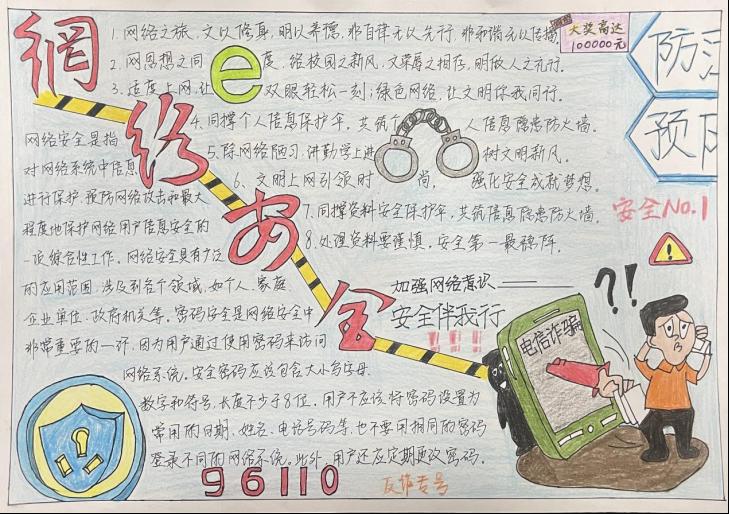 網络安全
1. 网络之旅,文以修身,明以养德,非自律无以先行,非和谐无以传播.
2. 网思想之同 e 度,给校园之新风,文荣辱之相存,明做人之元行.
3. 适度上网,让 双眼轻松一刻;绿色网络,让文明你我同行.
4. 同撑个人信息保护伞,共筑个人信息隐患防火墙.
5. 除网络陋习,讲勤学上进 树文明新风.
6. 文明上网引领时尚, 强化安全成就梦想.
7. 同撑资料安全保护伞,共筑信息隐患防火墙.
8. 处理资料要谨慎,安全第一最稳阵.
网络安全是指
对网络系统中信息
进行保护,预防网络攻击和最大
程度地保护网络用户信息安全的
一项综合性工作。网络安全具有广泛
的应用范围,涉及到各个领域,如个人、家庭
企业单位、政府机关等。密码安全是网络安全中
非常重要的一环,因为用户通过使用密码来访问
网络系统。安全密码应该包含大小写字母
数字和符号,长度不少于8位。用户不应该将密码设置为
常用的日期、姓名、电话号码等,也不要用相同的密码
登录不同的网络系统。此外,用户还应定期更改密码。
大奖高达
100000元
防
预防
安全No.1
加强网络意识——
安全伴我行
!!!
?!
电信诈骗
96110
反诈专号